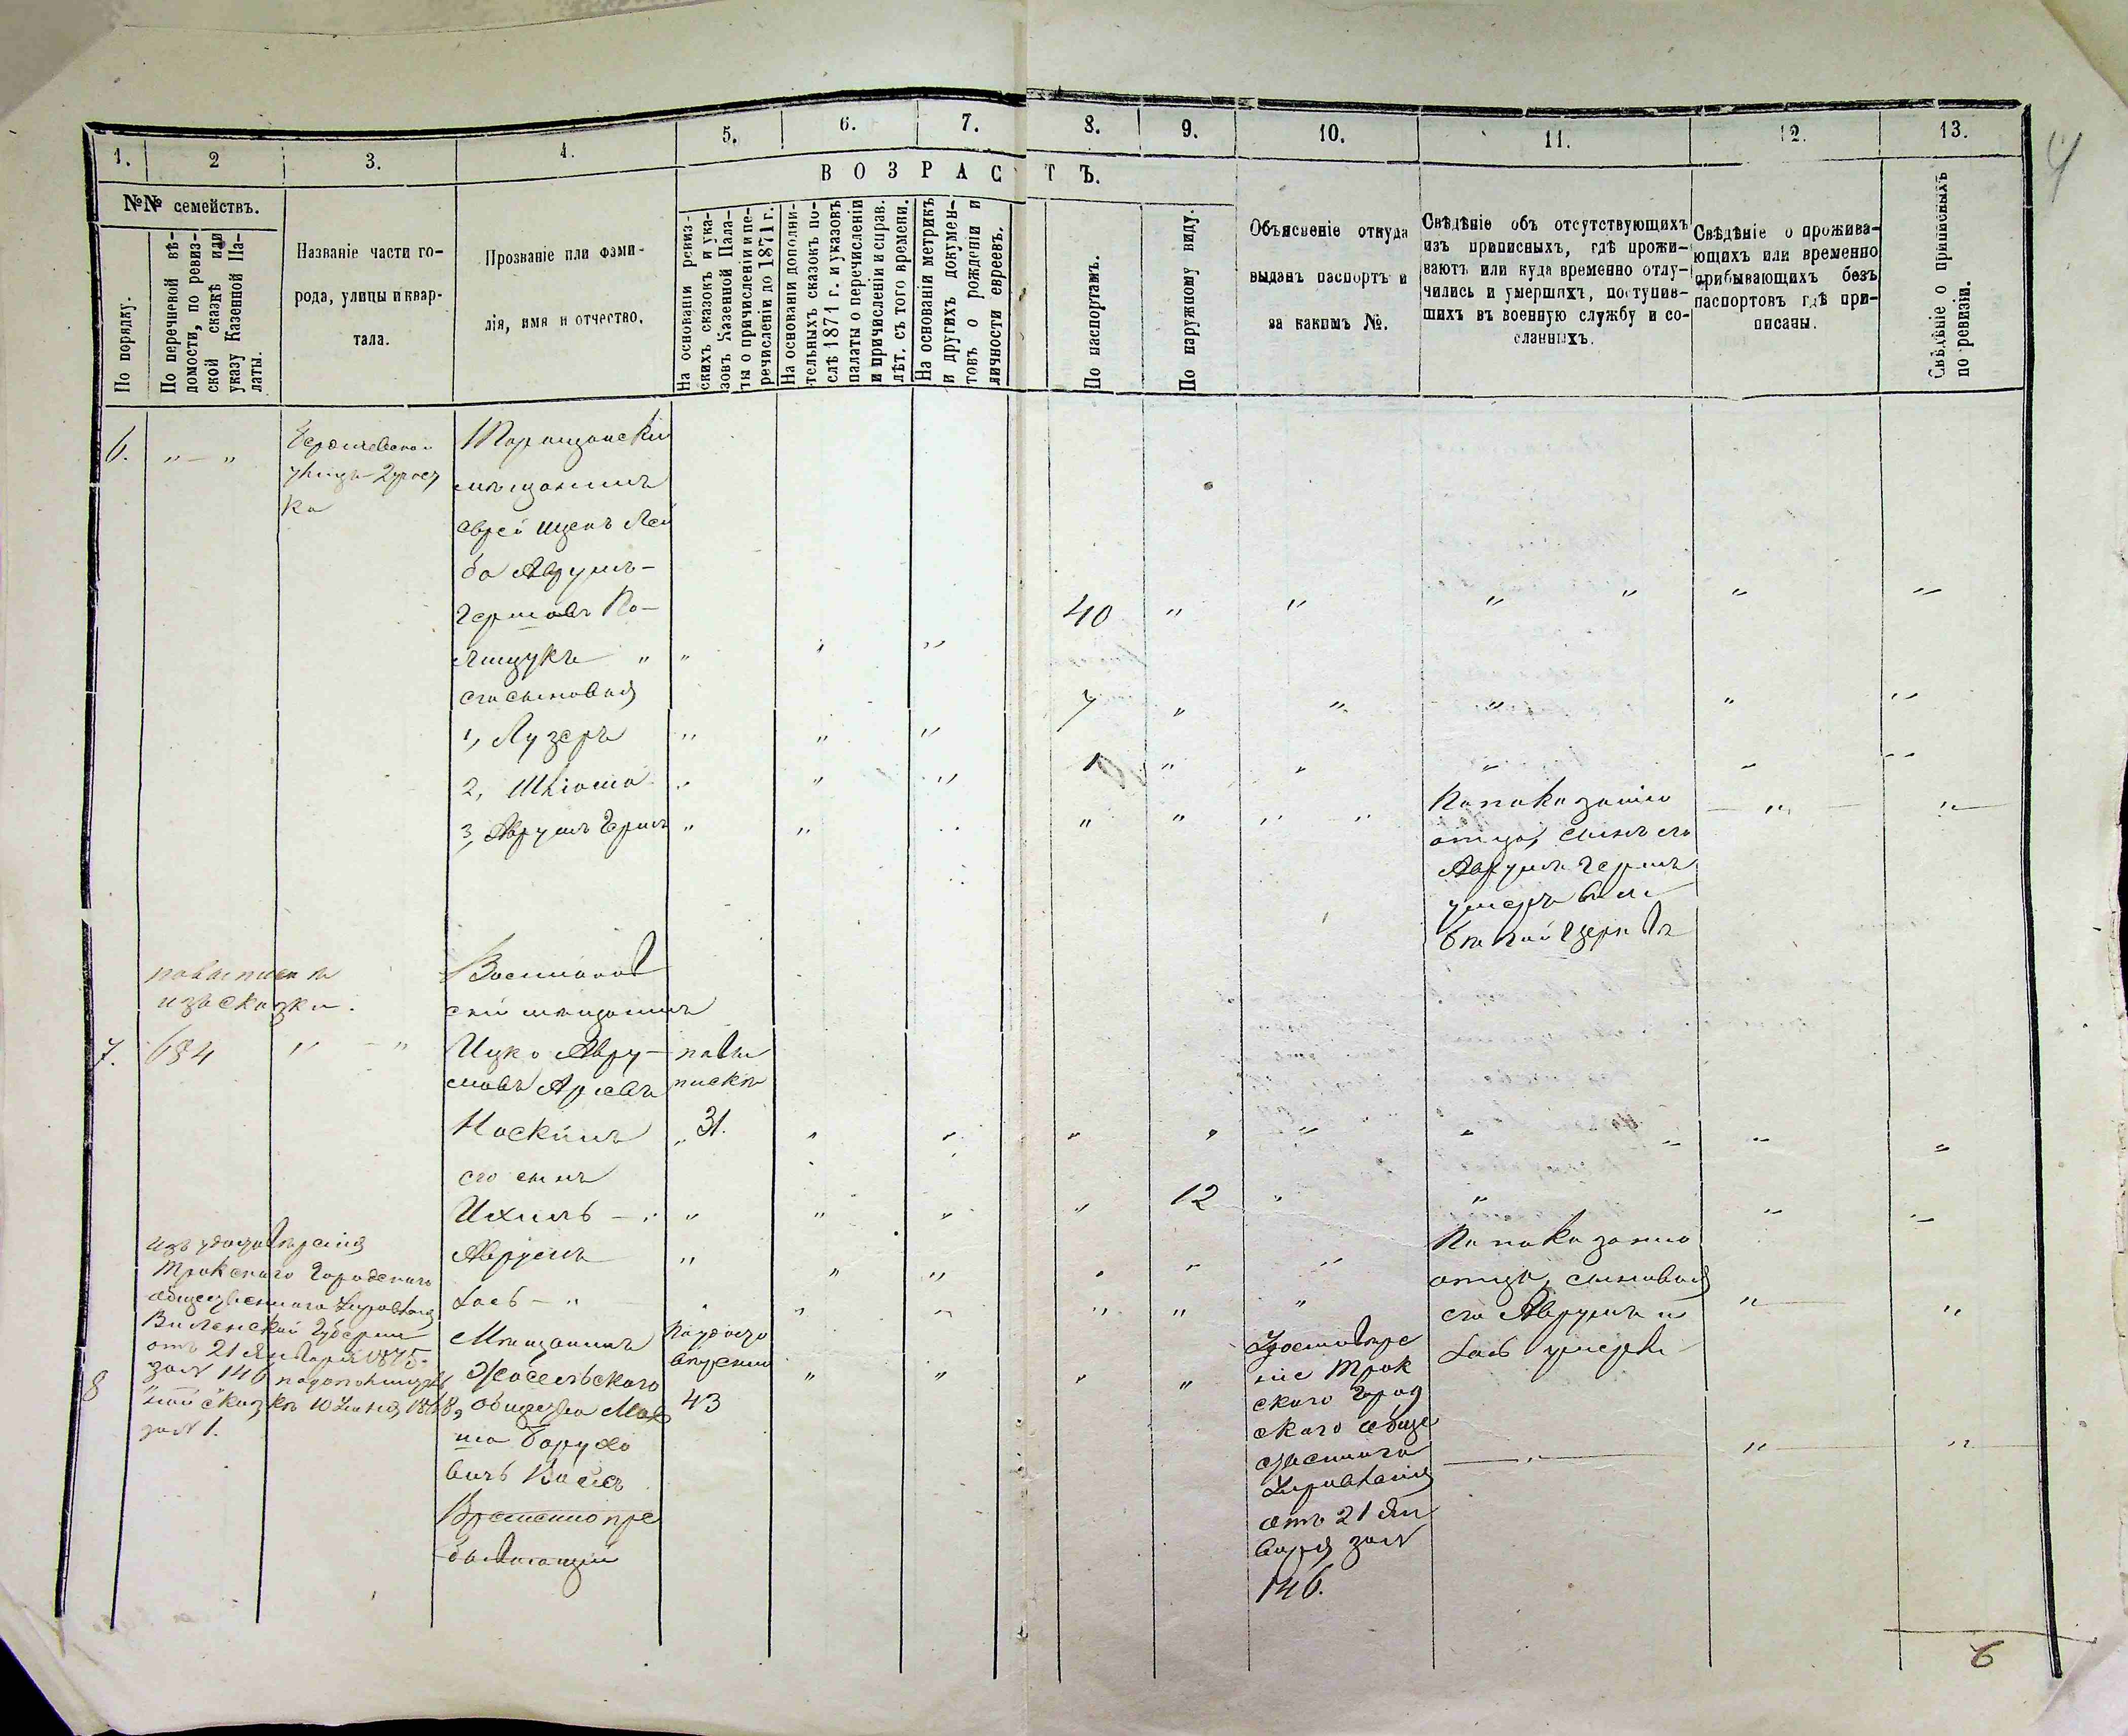 4
1.
2
3.
4.
5.
6.
7.
8.
9.
10.
11.
12.
13.
В О З Р А С Т Ъ.
№№ семействъ.
По порядку.
По перечневой вѣ-
домости, по ревиз-
ской сказкѣ или
указу Казенной Па-
латы.
Названіе части го-
рода, улицы и квар-
тала.
Прозваніе или фами-
лія, имя и отчество.
На основаніи ревиз-
скихъ сказокъ и ука-
зовъ Казенной Пала-
ты о причисленіи и пе-
речисленіи до 1871 г.
На основаніи дополни-
тельныхъ сказокъ по-
слѣ 1871 г. и указовъ
палаты о перечисленіи
и причисленіи и справ.
лѣт. съ того времени.
На основаніи метрикъ
и другихъ докумен-
товъ о рожденіи и
личности евреевъ.
По паспортамъ.
По наружному виду.
Объясненіе откуда
выданъ паспортъ и
за какимъ №.
Свѣдѣніе объ отсутствующихъ
изъ приписныхъ, гдѣ прожи-
ваютъ или куда временно отлу-
чились и умершихъ, поступив-
шихъ въ военную службу и со-
сланныхъ.
Свѣдѣніе о прожива-
ющихъ или временно
прибывающихъ безъ
паспортовъ гдѣ при-
писаны.
Свѣдѣніе о приписныхъ
по ревизіи.
6. " — "
Таращанскій
мѣщанинъ
еврей Лей
ба Аврумъ-
Гершовъ По-
лищукъ " " " " 40 " " " " " "
его сыновья
1, Лузеръ " " " 7 " " " " "
2, Шліома " " " 1 " " " " "
3, Аврумъ Гершъ " " " " " " "
По показанію
отца, сынъ его
Аврумъ Гершъ
умеръ въ
Бѣлой Церквѣ
по выпискѣ
изъ сказки.
скій мѣщанинъ
7. 684 " — "
Ицко Авру-
мовъ Аріевъ
Носкинъ
по вы
пискѣ
31. " " " " " " " "
его сынъ
Ихиль — " " " " " 12 " " " "
Аврумъ " " " " " "
По показанію
отца, сыновья
его Аврумъ и
умерли
изъ удостовѣренія
Трокскаго Городскаго
общественнаго Управленія
Виленской Губерніи
отъ 21 Января 1875.
за № 146 по дополнитель
ной сказкѣ 10 1868,
за № 1.
8
Мѣщанинъ
общества
Борухо
вичъ
Временно пре
бывающій
По удосто
вѣренію
43 " " " "
Удостовѣре
ніе Трок
скаго Город
скаго обще
ственнаго
Управленія
отъ 21 Ян
варя за №
146.
6